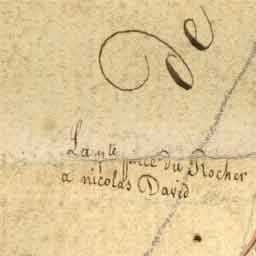 de
La pte piece du Rocher
a nicolas David